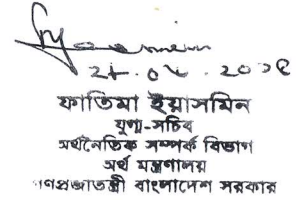 ফাতিমা ইয়াসমিন
যুগ্ম-সচিব
অর্থনৈতিক সম্পর্ক বিভাগ
অর্থ মন্ত্রণালয়
গণপ্রজাতন্ত্রী বাংলাদেশ সরকার